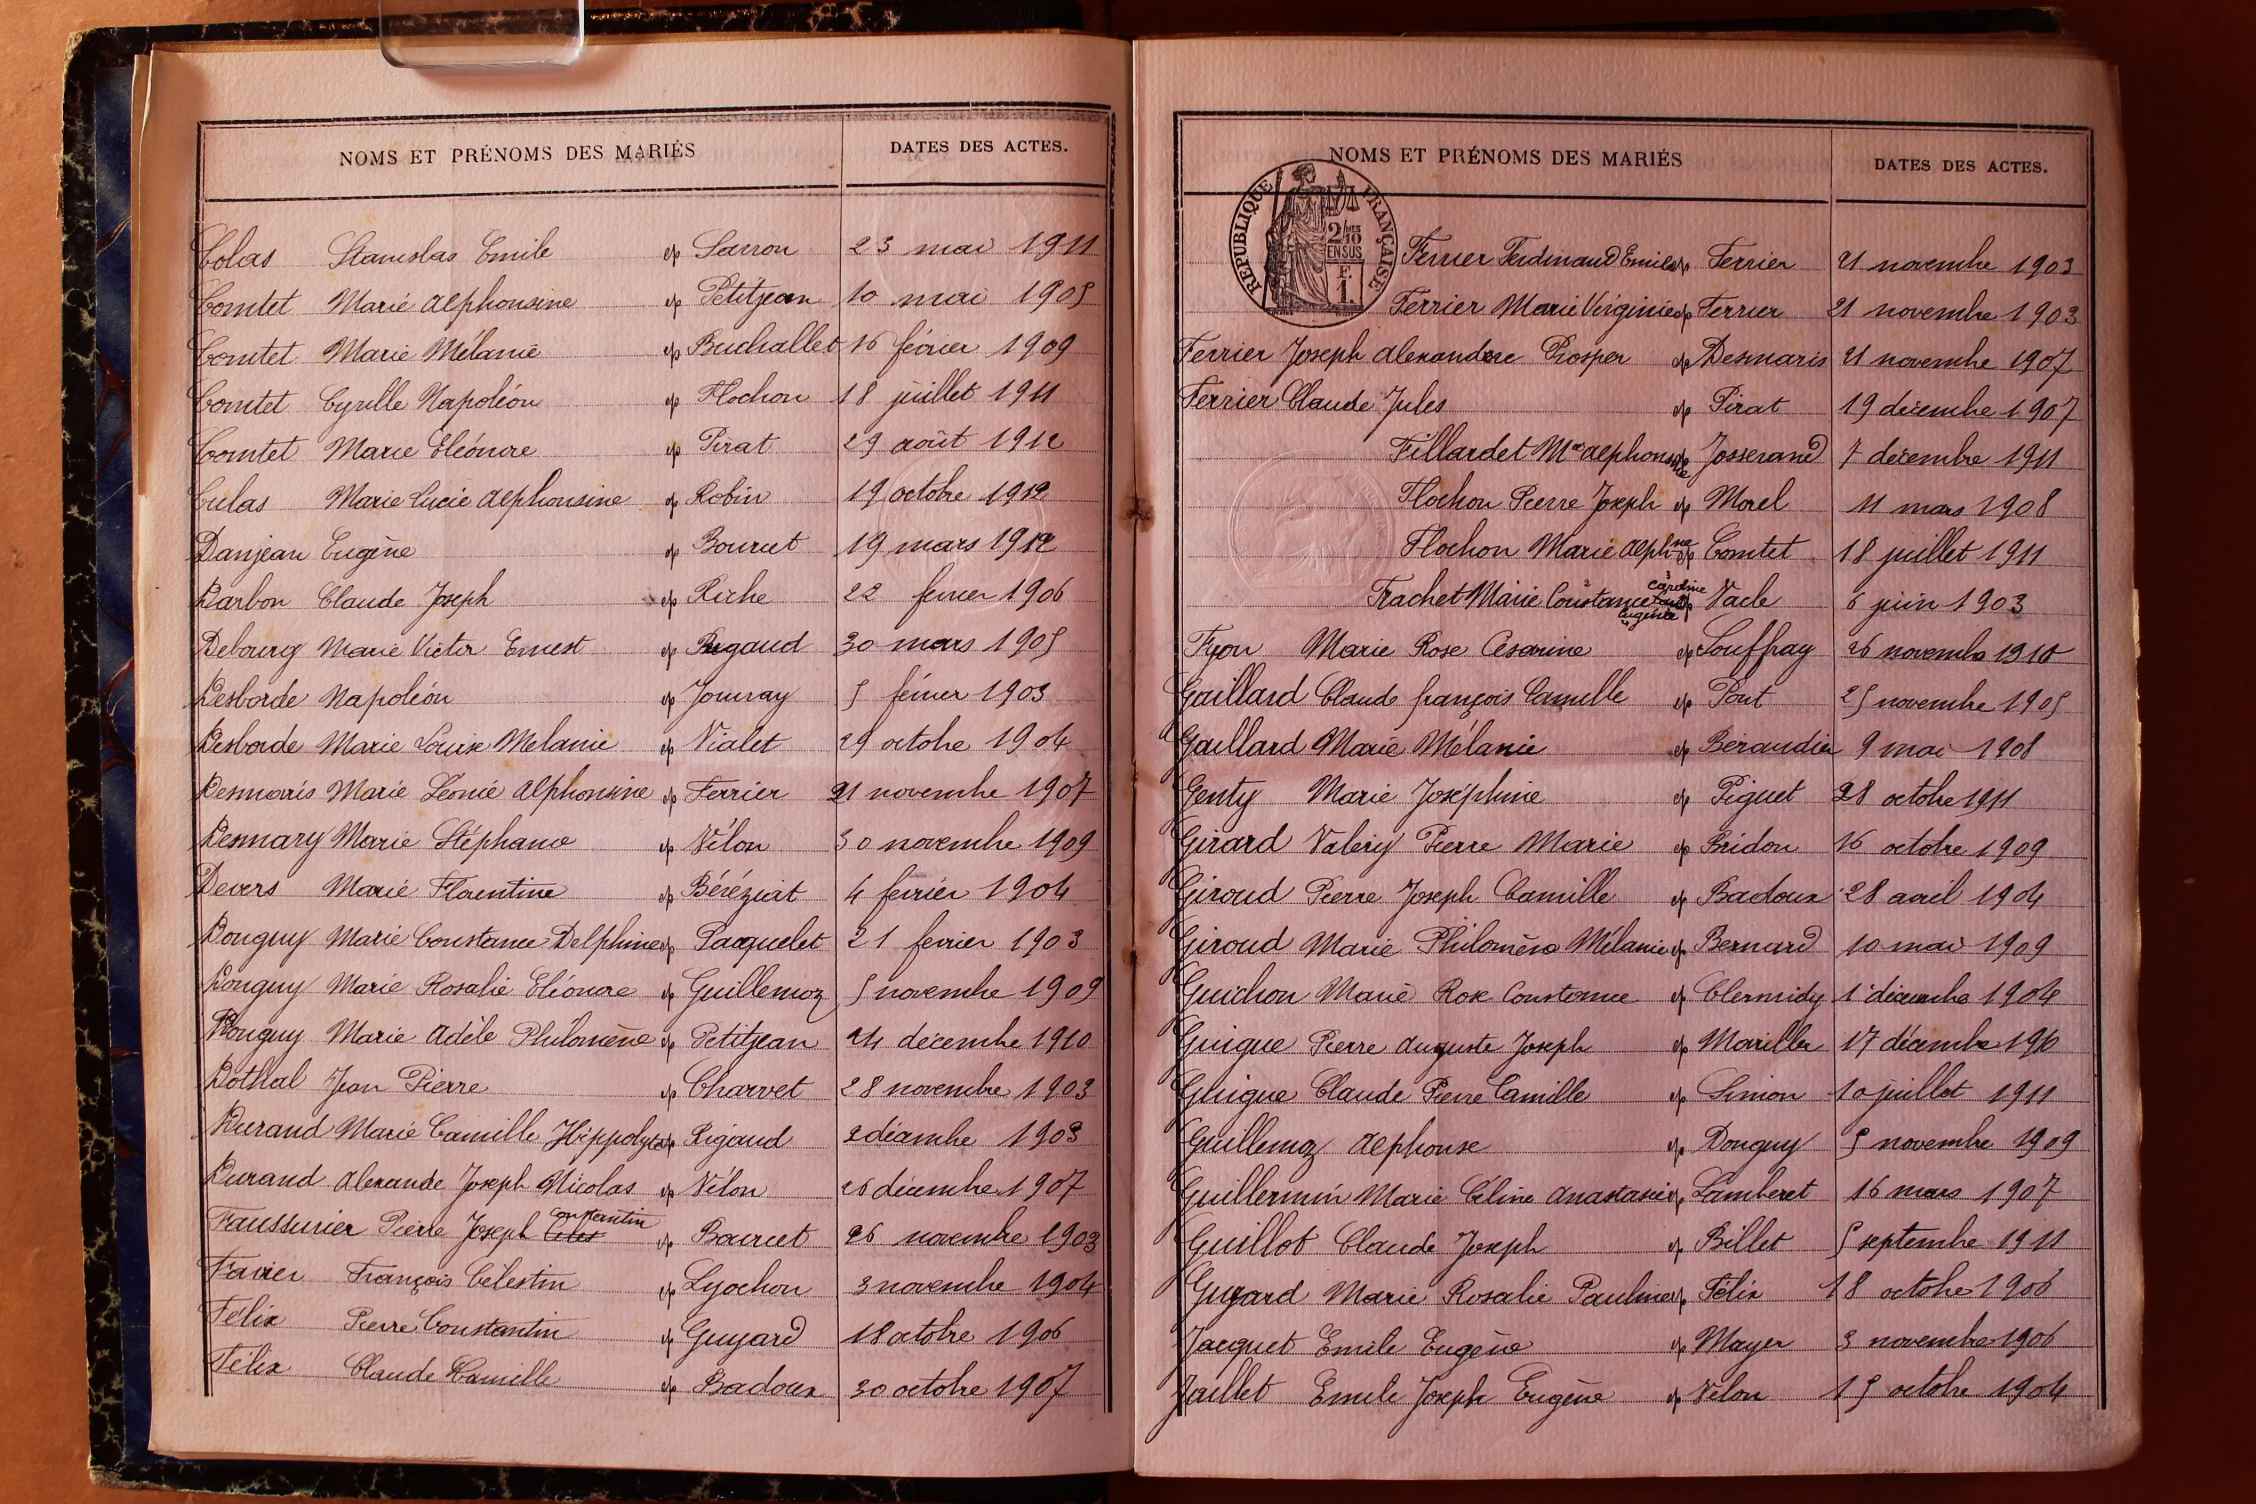 NOMS ET PRÉNOMS DES MARIÉS DATES DES ACTES.
Colas Stanislas Emile ép Sarron 23 mai 1911
Comtet Marie Alphonsine ép Petitjean 10 mai 1905
Comtet Marie Mélanie ép Buchallet 16 février 1909
Comtet Cyrille Napoléon ép Flochon 18 juillet 1911
Comtet Marie Eléonore ép Pirat 29 août 1912
Culas Marie Lucie Alphonsine ép Robin 19 octobre 1912
Danjean Eugène ép Bourcet 19 mars 1912
Darbon Claude Joseph ép Riche 22 fevrier 1906
Debourg Marie Victor Ernest ép Rigaud 30 mars 1905
Desborde Napoléon ép Jouvray 5 février 1903
Desborde Marie Louise Melanie ép Vialet 29 octobre 1904
Desmaris Marie Léonie Alphonsine ép Ferrier 21 novembre 1907
Desmary Marie Stéphanie ép Vélon 30 novembre 1909
Devers Marie Florentine ép Béréziat 4 fevrier 1904
Donguy Marie Constance Delphine ép Pacquelet 21 fevrier 1903
Donguy Marie Rosalie Eléonore ép Guillemoz 5 novembre 1909
Donguy Marie Adèle Philomène ép Petitjean 24 décembre 1910
Dothal Jean Pierre ép Charvet 28 novembre 1903
Durand Marie Camille Hippolyte ép Rigaud 2 décembre 1903
Durand Alexandre Joseph Nicolas ép Vélon 26 décembre 1907
Faussurier Pierre Joseph Constantin ép Bourcet 26 novembre 1903
Favier François Célestin ép Lyochon 3 novembre 1904
Félix Pierre Constantin ép Guyard 18 octobre 1906
Félix Claude Camille ép Badoux 30 octobre 1907
NOMS ET PRÉNOMS DES MARIÉS DATES DES ACTES.
RÉPUBLIQUE FRANÇAISE
2/10 MES
EN SUS
F.
1.
Ferrier Ferdinand Emile ép Ferrier 21 novembre 1903
Ferrier Marie Virginie ép Ferrier 21 novembre 1903
Ferrier Joseph Alexandre Prosper ép Desmaris 21 novembre 1907
Ferrier Claude Jules ép Pirat 19 décembre 1907
Fillardet Mie Alphonsine ép Josserand 7 décembre 1911
Flochon Pierre Joseph ép Morel 11 mars 1908
Flochon Marie Alphne ép Comtet 18 juillet 1911
Trachet Marie Constance Caroline Eugénie ép Vacle 6 juin 1903
Fyon Marie Rose Césarine ép Souffray 26 novembre 1910
Gaillard Claude françois Camille ép Pont 25 novembre 1905
Gaillard Marie Mélanie ép Béraudier 9 mai 1908
Genty Marie Joséphine ép Piguet 28 octobre 1911
Girard Valéry Pierre Marie ép Bridon 16 octobre 1909
Giroud Pierre Joseph Camille ép Badoux 28 avril 1904
Giroud Marie Philomène Mélanie ép Bernard 10 mai 1909
Guichon Marie Rose Constance ép Clermidy 1 décembre 1904
Guigue Pierre Auguste Joseph ép Mariller 17 décembre 1910
Guigue Claude Pierre Camille ép Simon 10 juillet 1911
Guillemoz Alphonse ép Donguy 5 novembre 1909
Guillermin Marie Céline Anastasie ép Lamberet 16 mars 1907
Guillot Claude Joseph ép Billet 5 septembre 1911
Guyard Marie Rosalie Pauline ép Félix 18 octobre 1906
Jacquet Emile Eugène ép Mayer 3 novembre 1906
Jaillet Emile Joseph Eugène ép Vélon 15 octobre 1904